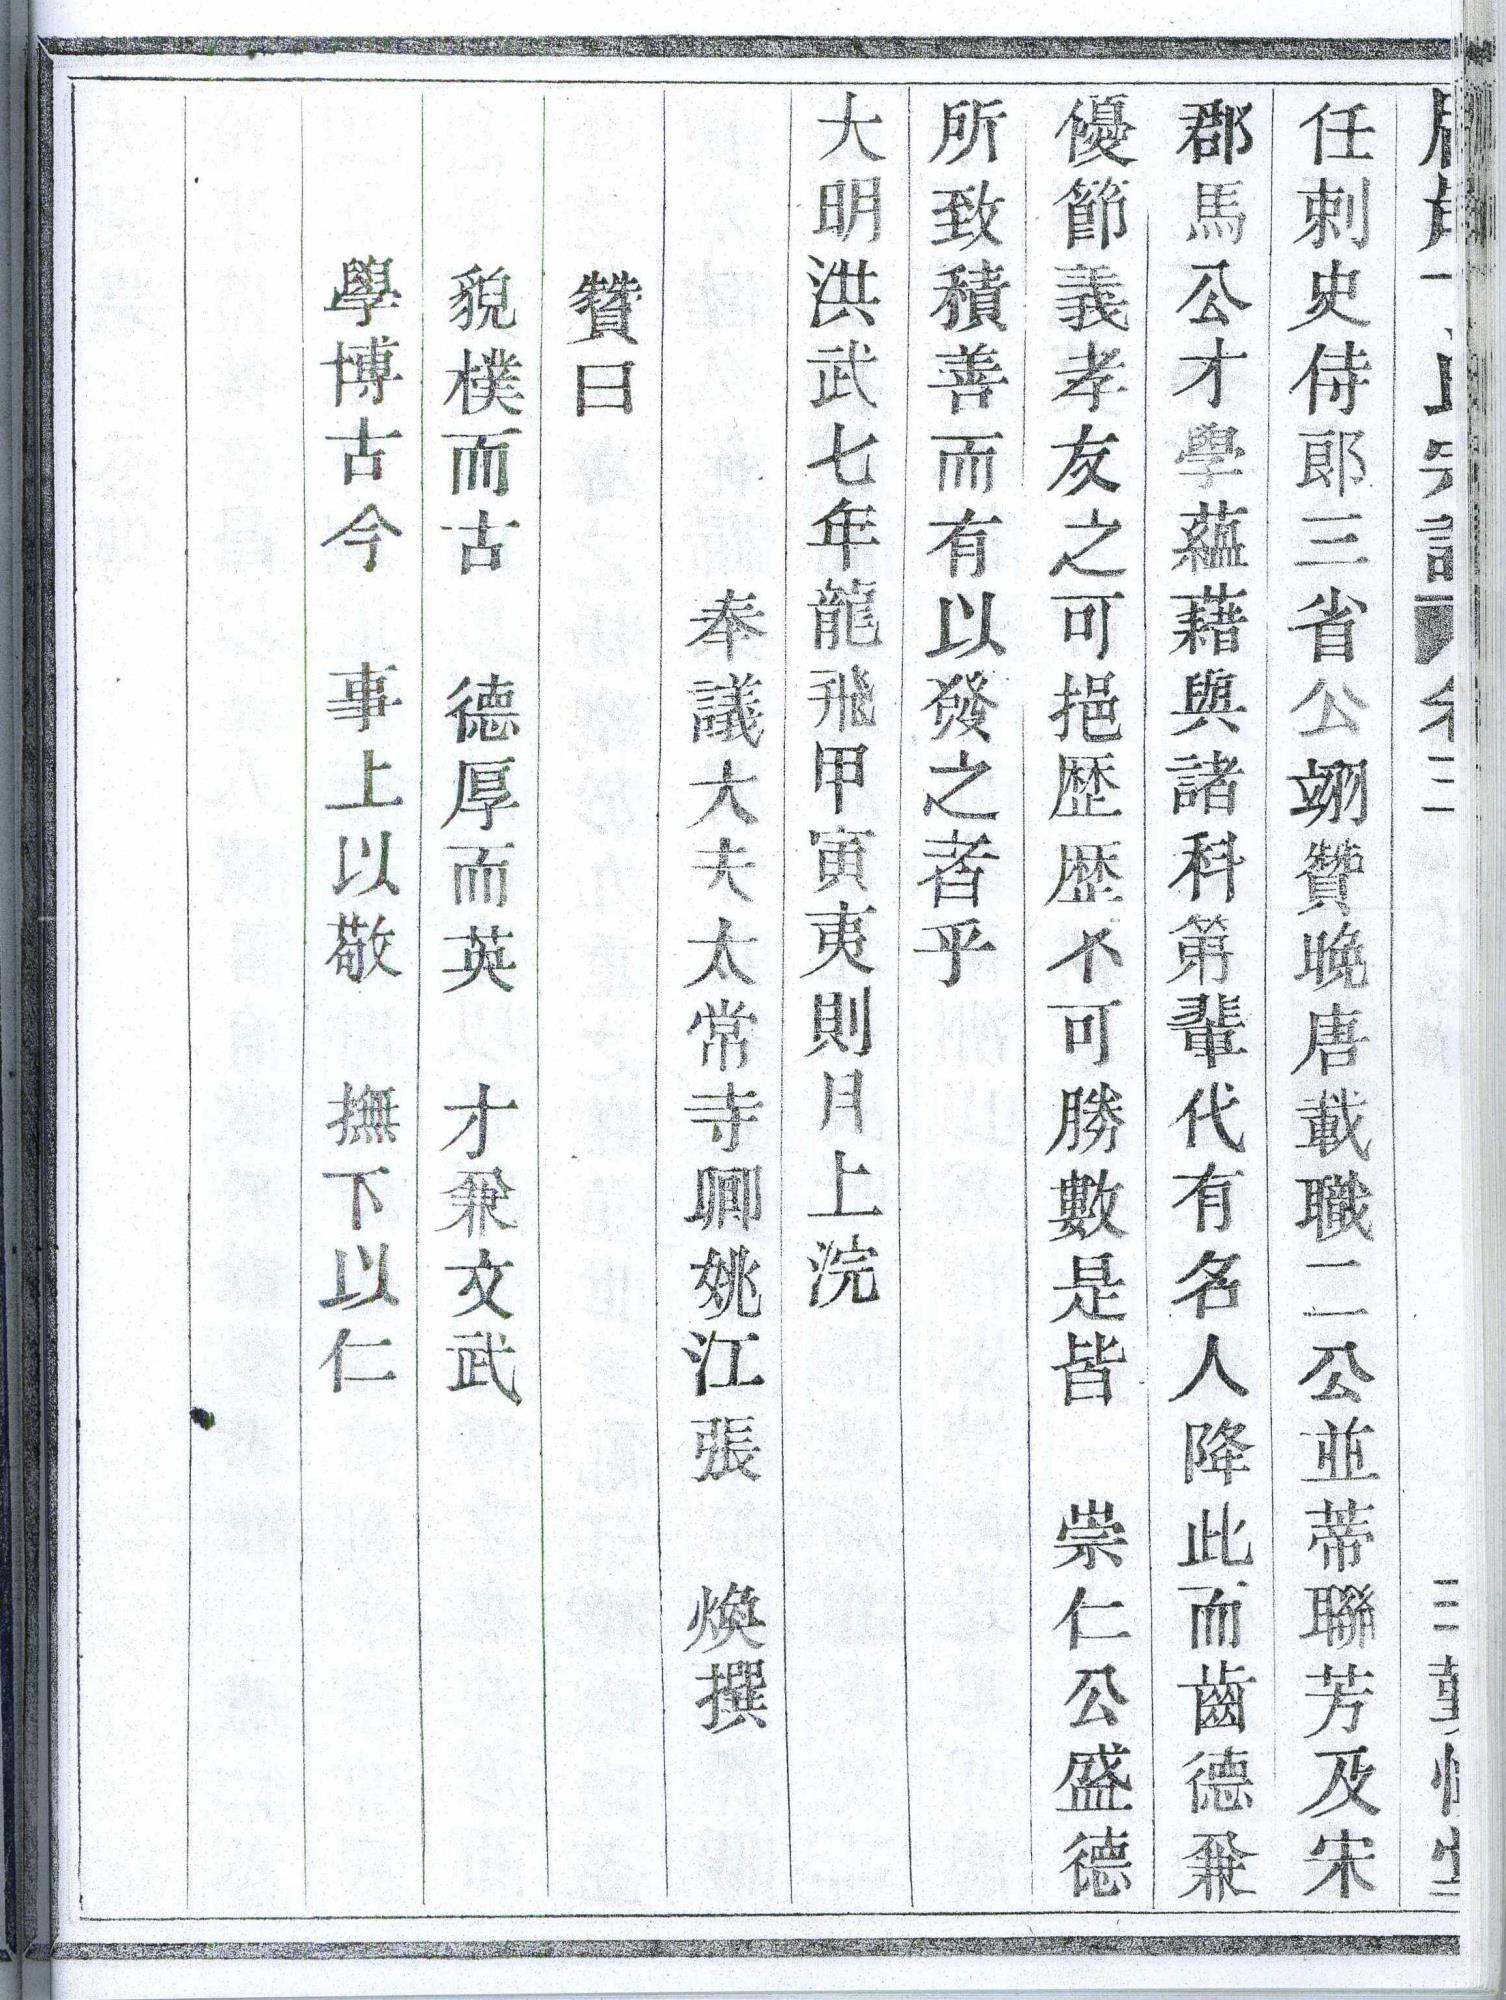 任刺史侍郎三省公翊贊晚唐載職二公並蒂聯芳及宋
郡馬公才學蘊藉與諸科第輩代有名人降此而齒德兼
優節義孝友之可挹歷歷不可勝數是皆　崇仁公盛德
所致積善而有以發之者乎
大明洪武七年龍飛甲寅夷則月上浣
奉議大夫太常寺卿姚江張　煥撰
贊曰
貌樸而古　德厚而英　才兼文武
學博古今　事上以敬　撫下以仁